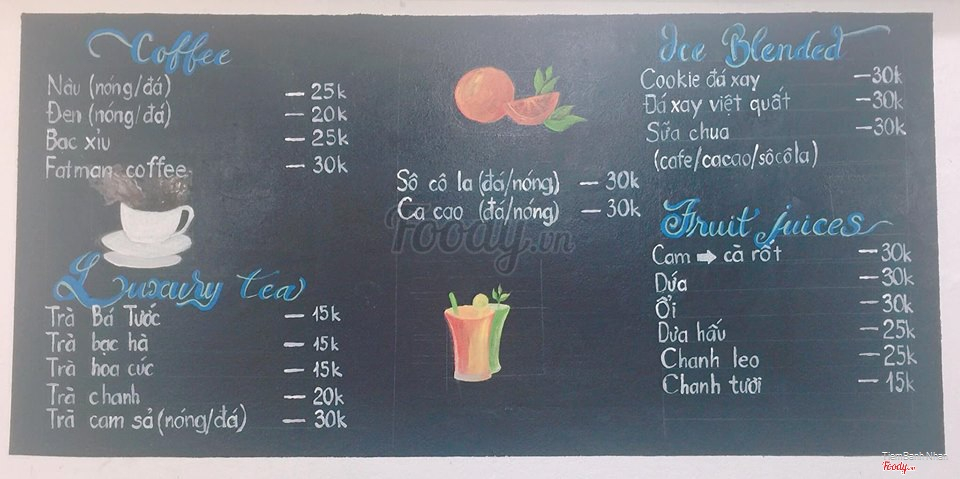 Coffee
Nâu (nóng/đá) – 25k
Đen (nóng/đá) – 20k
Bạc xỉu – 25k
Fatman coffee – 30k
Luxury tea
Trà Bá Tước – 15k
Trà bạc hà – 15k
Trà hoa cúc – 15k
Trà chanh – 20k
Trà cam sả (nóng/đá) – 30k
Sô cô la (đá/nóng) – 30k
Ca cao (đá/nóng) – 30k
Foody.vn
Ice Blended
Cookie đá xay – 30k
Đá xay việt quất – 30k
Sữa chua – 30k
(cafe/cacao/sôcôla)
Fruit juices
Cam ➡ cà rốt – 30k
Dứa – 30k
Ổi – 30k
Dưa hấu – 25k
Chanh leo – 25k
Chanh tươi – 15k
TiemBanh Nhan
Foody.vn